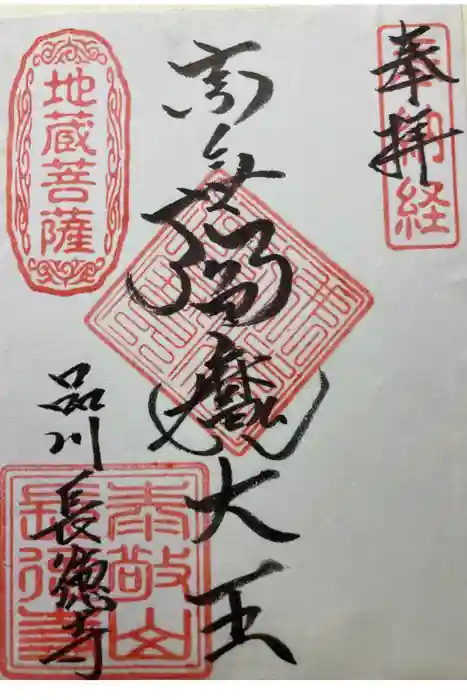 奉拝
奉納経
南無閻魔大王
地蔵菩薩
品川
長徳寺
敬山
長徳寺